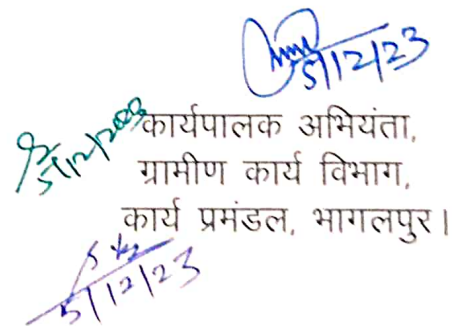 5/12/23
5/12/2023
कार्यपालक अभियंता,
ग्रामीण कार्य विभाग,
कार्य प्रमंडल, भागलपुर।
5/12/23